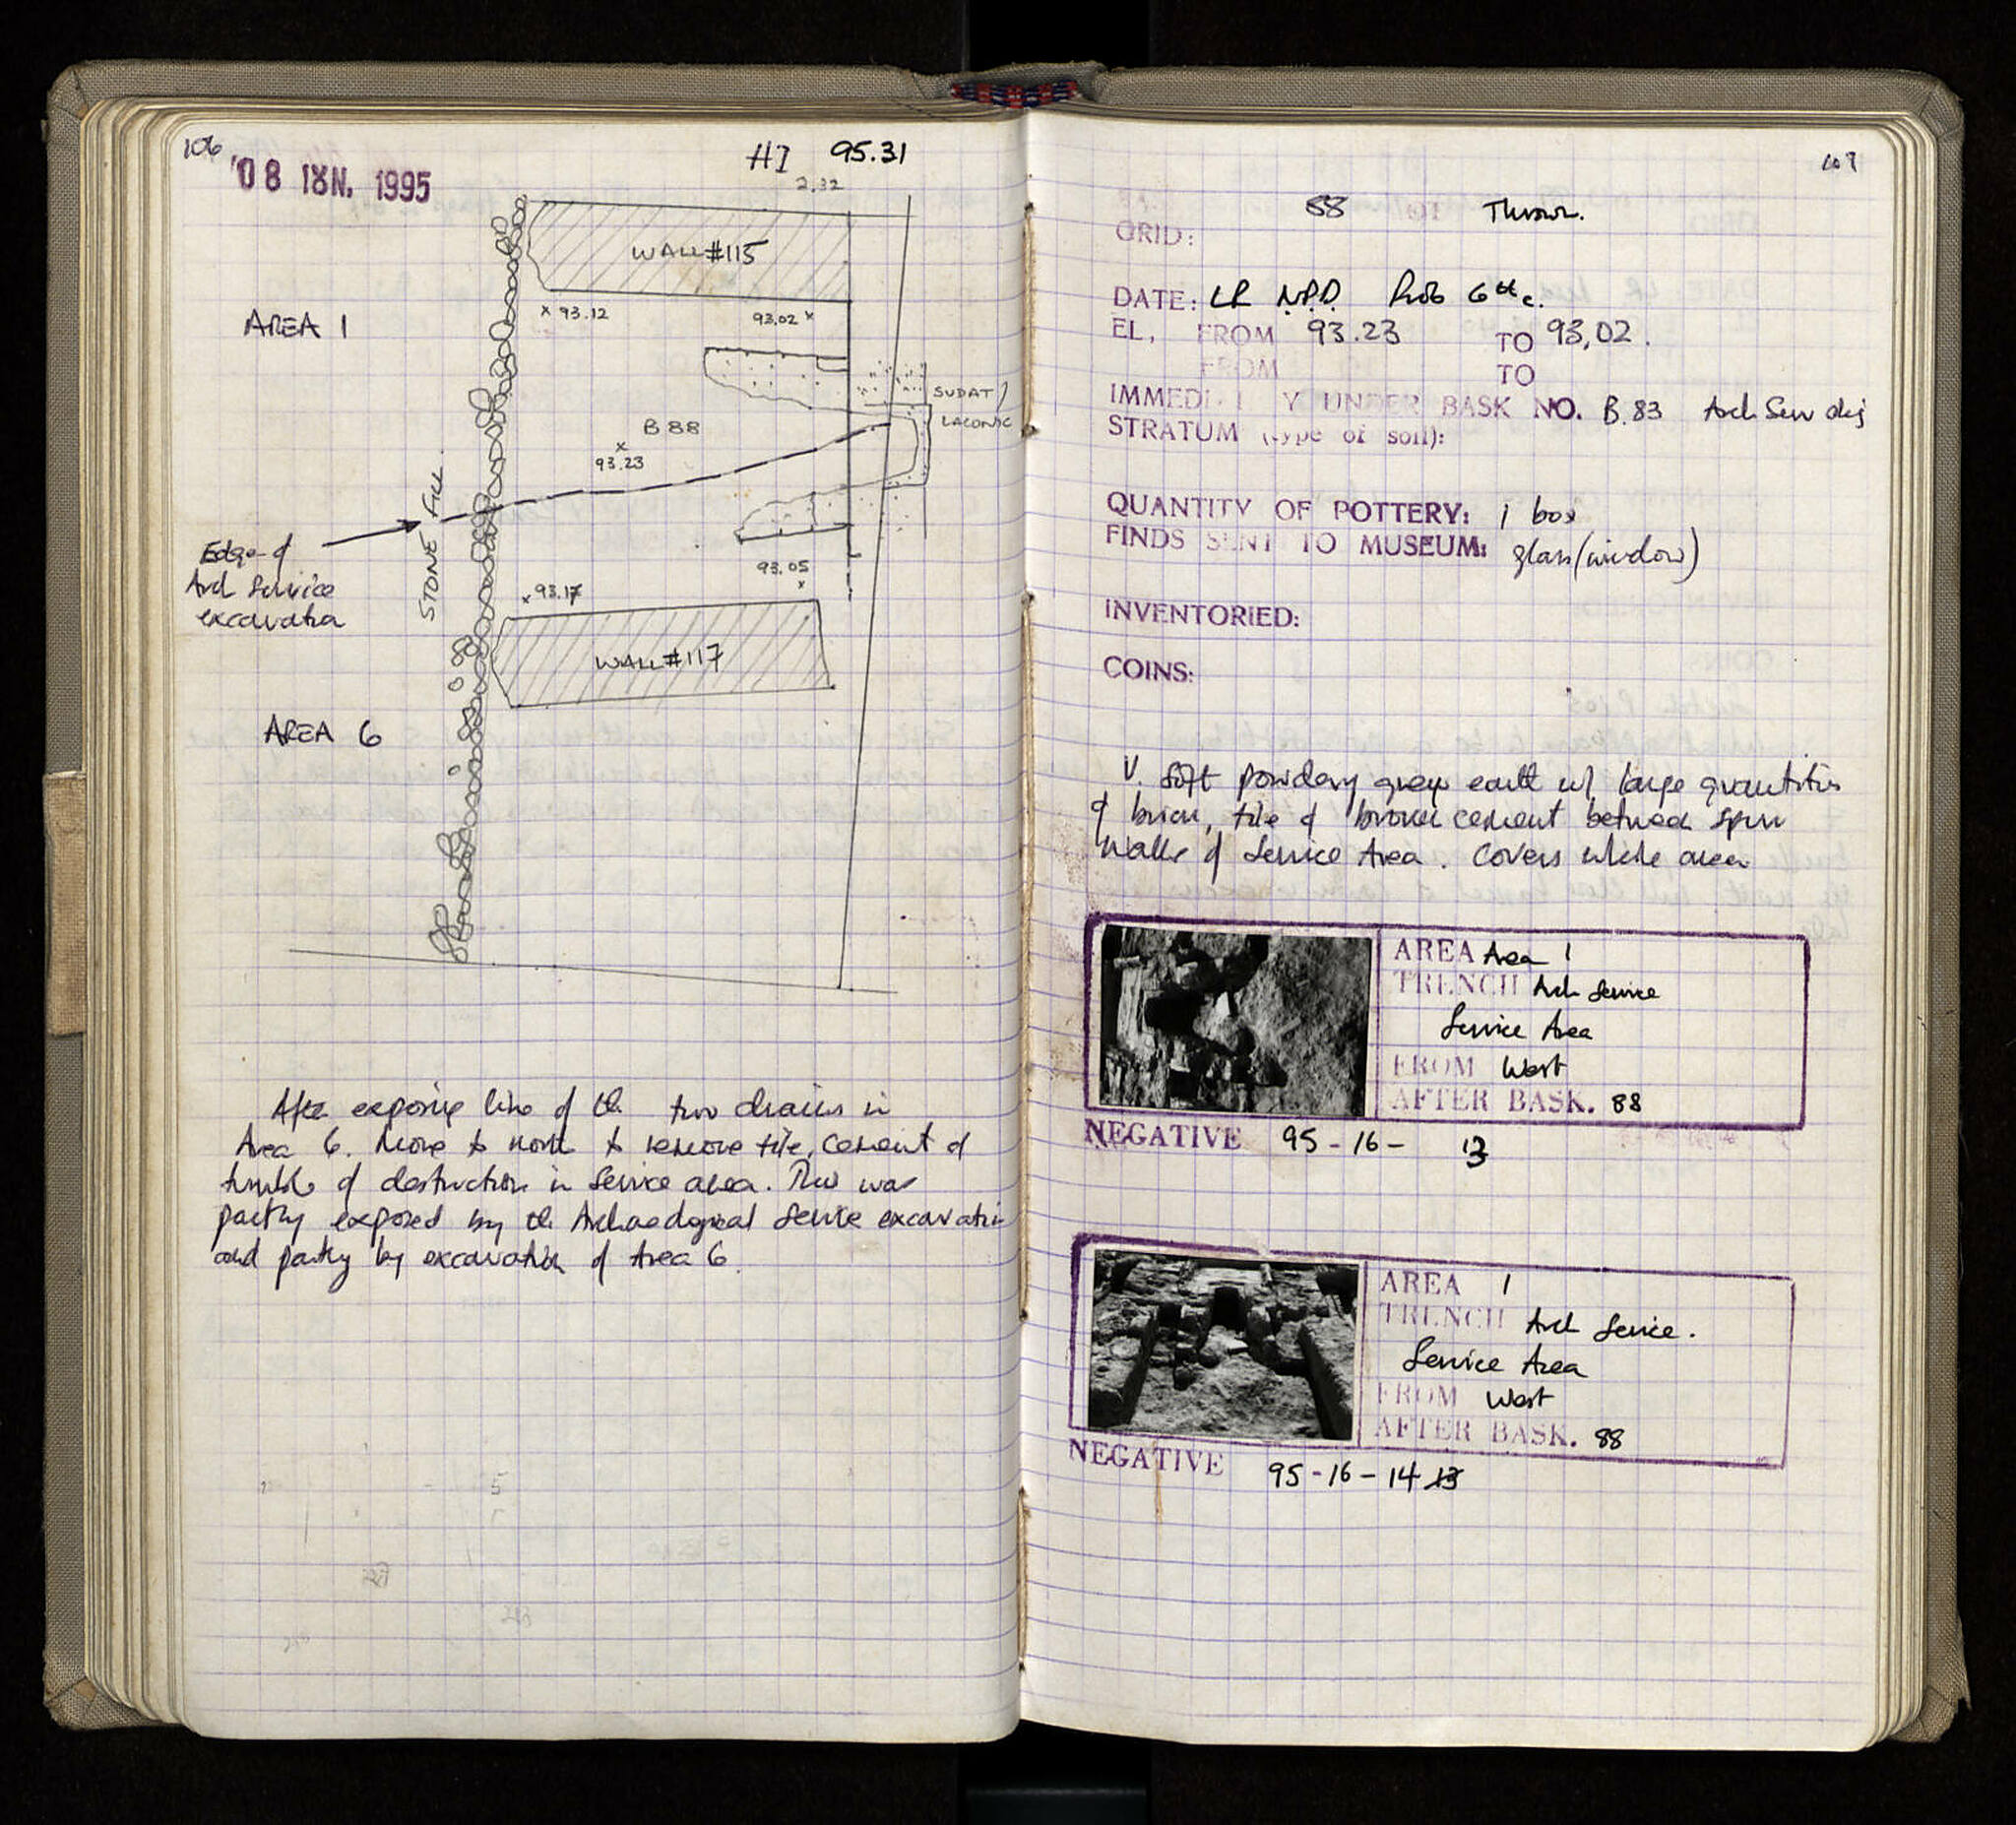 106
08 ΙΟΥΝ. 1995
HI 95.31
2.32
WALL #115
× 93.12
93.02 ×
AREA 1
SUDAT /
LACONIC
B 88
×
93.23
STONE FILL.
Edge of
Arch Service
excavation
93.05
×
× 93.17
WALL #117
AREA 6
After exposing line of the two drains in
Area 6. Move to north to remove tile, cement &
tumble of destruction in Service area. This was
partly exposed by the Archaeological Service excavation
and partly by excavation of Area 6.
107
88 Thrown.
GRID:
DATE: LR N.P.D. Prob 6th c.
EL, FROM 93.23 TO 93.02.
FROM TO
IMMEDI Y UNDER BASK NO. B.83 Arch Serv dig
STRATUM (type of soil):
QUANTITY OF POTTERY: 1 box
FINDS SENT TO MUSEUM: glass (window)
INVENTORIED:
COINS:
V. soft powdery grey earth w/ large quantities
of brick, tile & broken cement between spur
walls of Service Area. Covers whole area
AREA Area 1
TRENCH Arch Service
Service Area
FROM West
AFTER BASK. 88
NEGATIVE 95-16- 13
AREA 1
TRENCH Arch Service.
Service Area
FROM West
AFTER BASK. 88
NEGATIVE 95-16-14 13